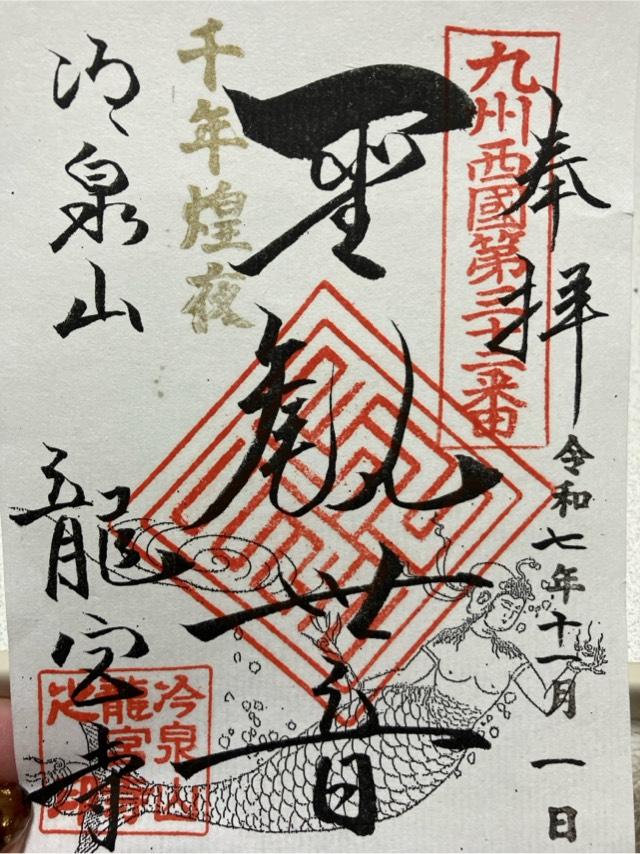 奉拝
令和七年十一月一日
九州西國第三十二番
聖観世音
千年煌夜
冷泉山
龍宮寺
冷泉山
龍宮寺